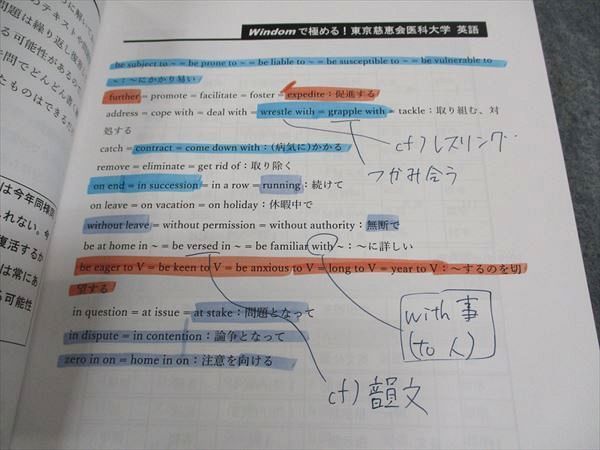 Windomで極める！東京慈恵会医科大学 英語
be subject to ~ = be prone to ~ = be liable to ~ = be susceptible to ~ = be vulnerable to
~：~にかかり易い
further = promote = facilitate = foster = expedite：促進する
address = cope with = deal with = wrestle with = grapple with = tackle：取り組む、対
処する
cf) レスリング…
つかみ合う
catch = contract = come down with：(病気に)かかる
remove = eliminate = get rid of：取り除く
on end = in succession = in a row = running：続けて
on leave = on vacation = on holiday：休暇中で
without leave = without permission = without authority：無断で
be at home in ~ = be versed in ~ = be familiar with ~：~に詳しい
be eager to V = be keen to V = be anxious to V = long to V = year to V：~するのを切
望する
in question = at issue = at stake：問題となって
in dispute = in contention：論争となって
zero in on = home in on：注意を向ける
with 事
(to 人)
cf) 韻文
のテキストや問
問題は繰り返し復
る可能性があるので
問でどんどん書
たものはできる
は今年同様
れない。今
復活するか
は常にあ
る可能性